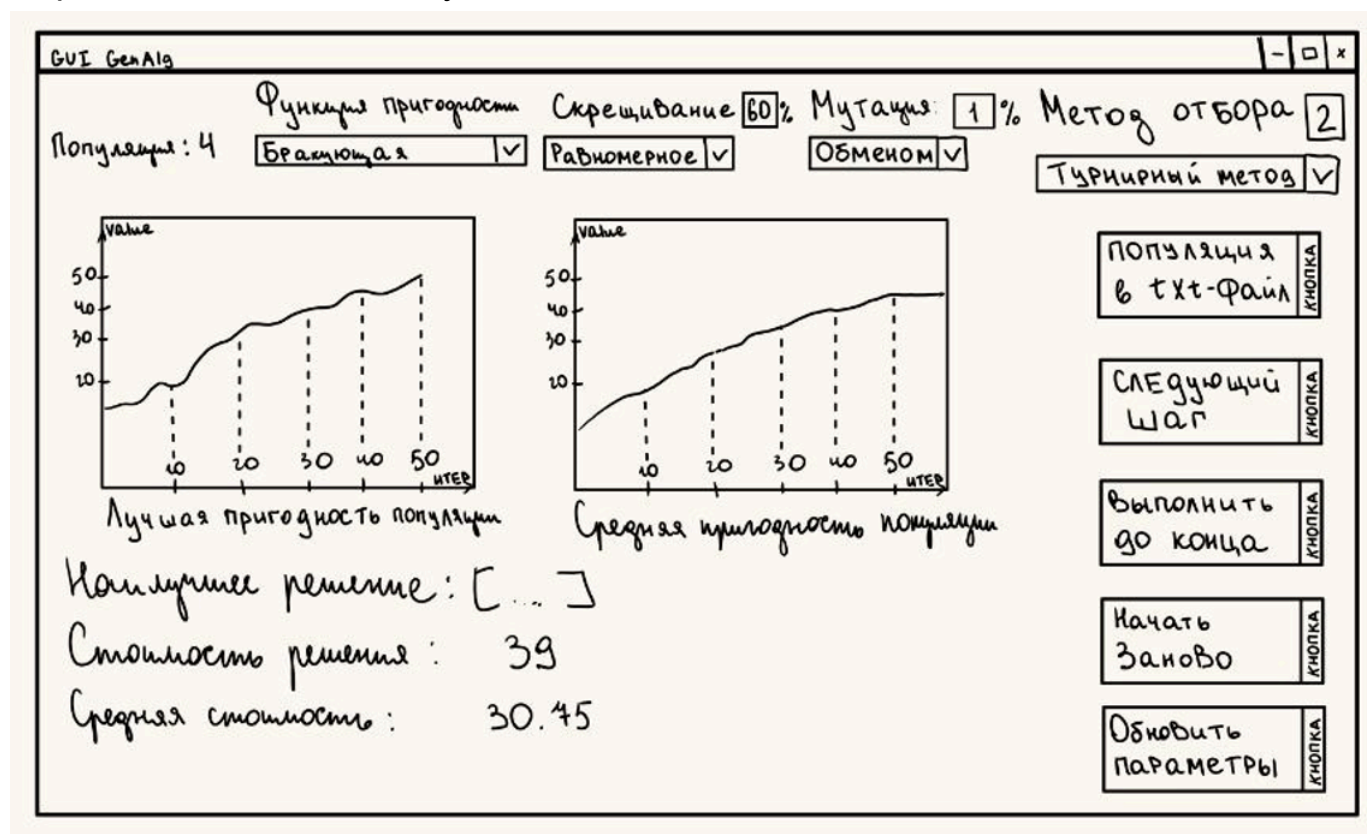 GUI GenAlg
- □ x
Популяция: 4
Функция пригодности
Бракующая
Скрещивание 60 %
Равномерное
Мутация: 1 %
Обменом
Метод отбора 2
Турнирный метод
value
50
40
30
20
10 20 30 40 50
итер
Лучшая пригодность популяции
value
50
40
30
20
10 20 30 40 50
итер
Средняя пригодность популяции
популяция
в txt-файл
КНОПКА
Следующий
шаг
КНОПКА
Выполнить
до конца
КНОПКА
Начать
Заново
КНОПКА
Обновить
параметры
КНОПКА
Наилучшее решение: [...]
Стоимость решения: 39
Средняя стоимость: 30.75